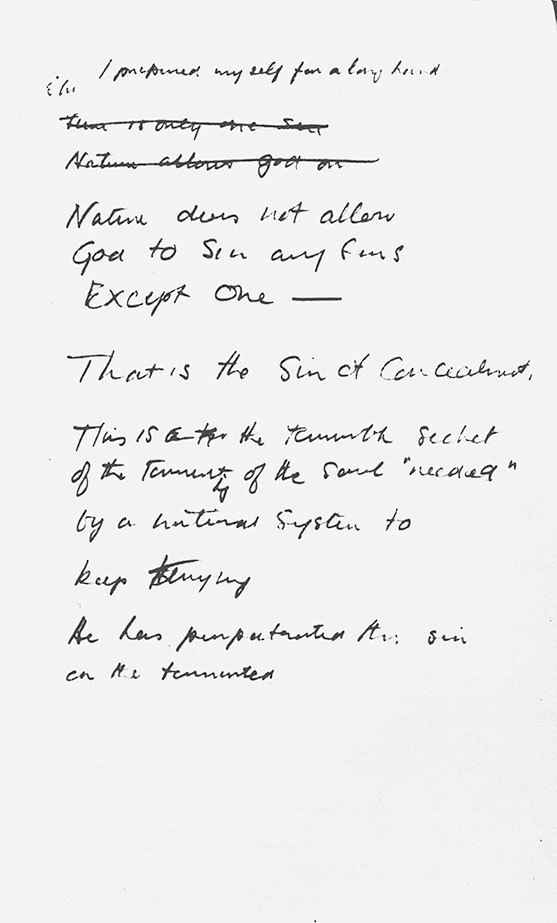 I prepared my self for a long hard
There is only one Sin
Nature allows God on
Nature does not allow
God to Sin any Sins
Except One —
That is the Sin of Concealment.
This is the terrible secret
of the Torment of the Soul "needed"
by a natural System to
keep trying
He has perpetrated this sin
on the tormented